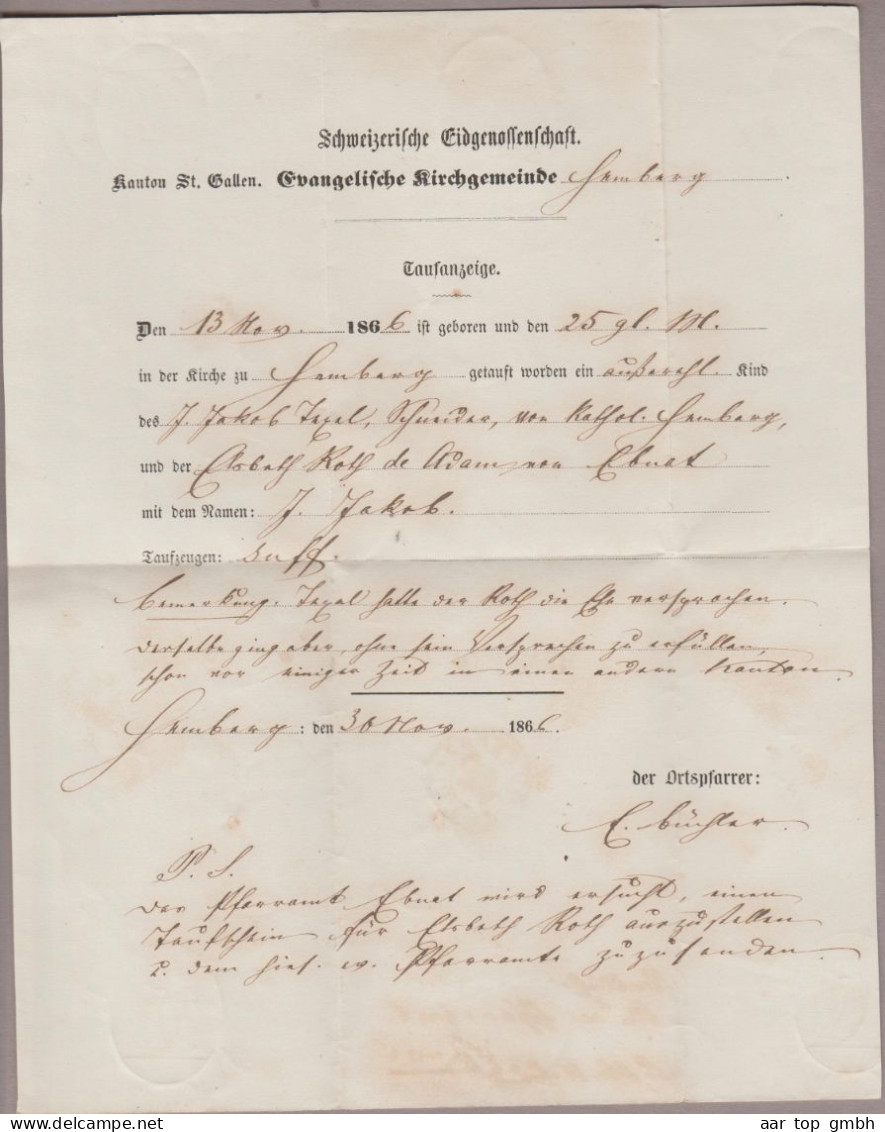 Schweizerische Eidgenossenschaft.
Kanton St. Gallen. Evangelische Kirchgemeinde Hemberg.
Taufanzeige.
Den 13 Nov. 1866 ist geboren und den 25 gl. M.
in der Kirche zu Hemberg getauft worden ein außerehl. Kind
des J. Jakob Texel, Schneider, von Kathol. Hemberg,
und der Elsbeth Roth de Adam, von Ebnat
mit dem Namen: J. Jakob.
Taufzeugen: suff.
Bemerkung. Texel hatte der Roth die Ehe versprochen.
derselbe ging aber, ohne sein Versprechen zu erfüllen,
schon vor einiger Zeit in einen andern Kanton.
Hemberg: den 30 Nov. 1866.
der Ortspfarrer:
E. Büchler.
P. S.
Das Pfarramt Ebnat wird ersucht, einen
Taufschein für Elsbeth Roth auszustellen
u. dem hies. ev. Pfarramte zuzusenden.
aar top gmbh